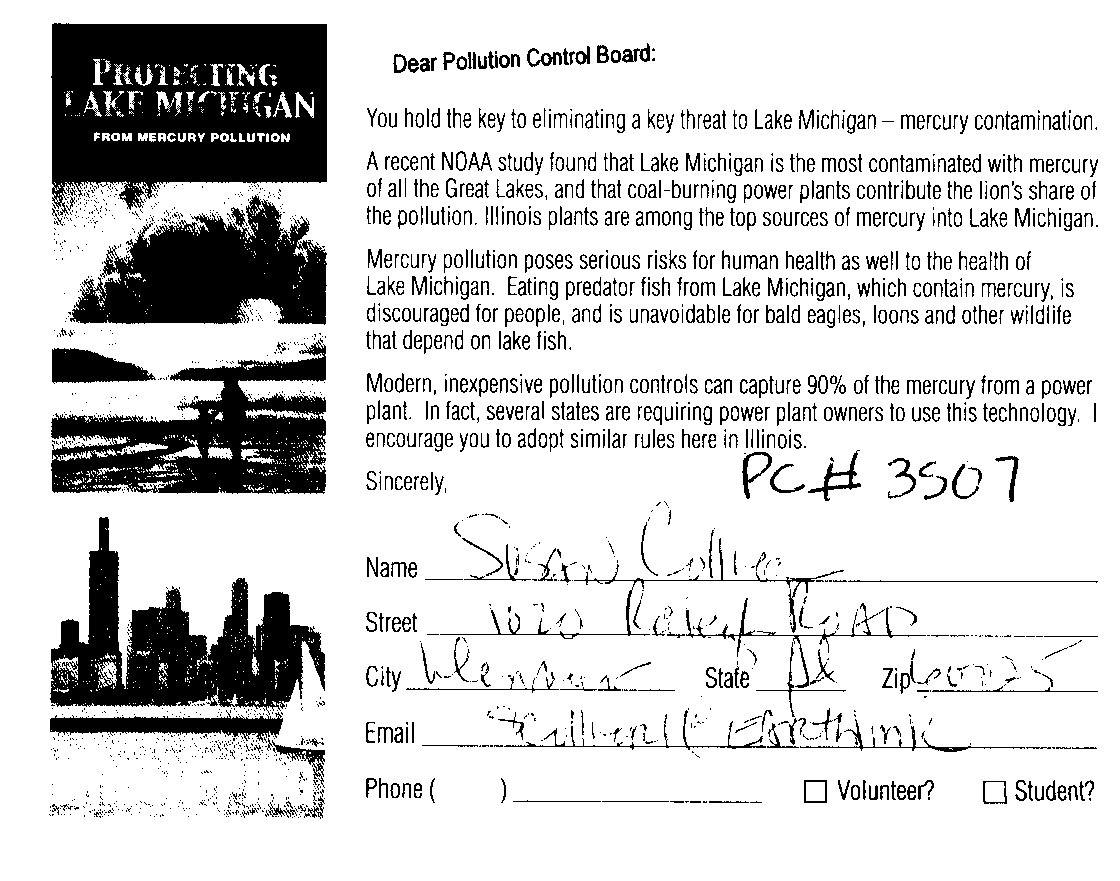 PROTECTING
LAKE MICHIGAN
FROM MERCURY POLLUTION
Dear Pollution Control Board:
You hold the key to eliminating a key threat to Lake Michigan – mercury contamination.
A recent NOAA study found that Lake Michigan is the most contaminated with mercury
of all the Great Lakes, and that coal-burning power plants contribute the lion's share of
the pollution. Illinois plants are among the top sources of mercury into Lake Michigan.
Mercury pollution poses serious risks for human health as well to the health of
Lake Michigan. Eating predator fish from Lake Michigan, which contain mercury, is
discouraged for people, and is unavoidable for bald eagles, loons and other wildlife
that depend on lake fish.
Modern, inexpensive pollution controls can capture 90% of the mercury from a power
plant. In fact, several states are requiring power plant owners to use this technology. I
encourage you to adopt similar rules here in Illinois.
Sincerely,
PC# 3507
Name Susan
Street 1020 Road
City State Il Zip 60025
Email Earthlink
Phone ( ) Volunteer? Student?